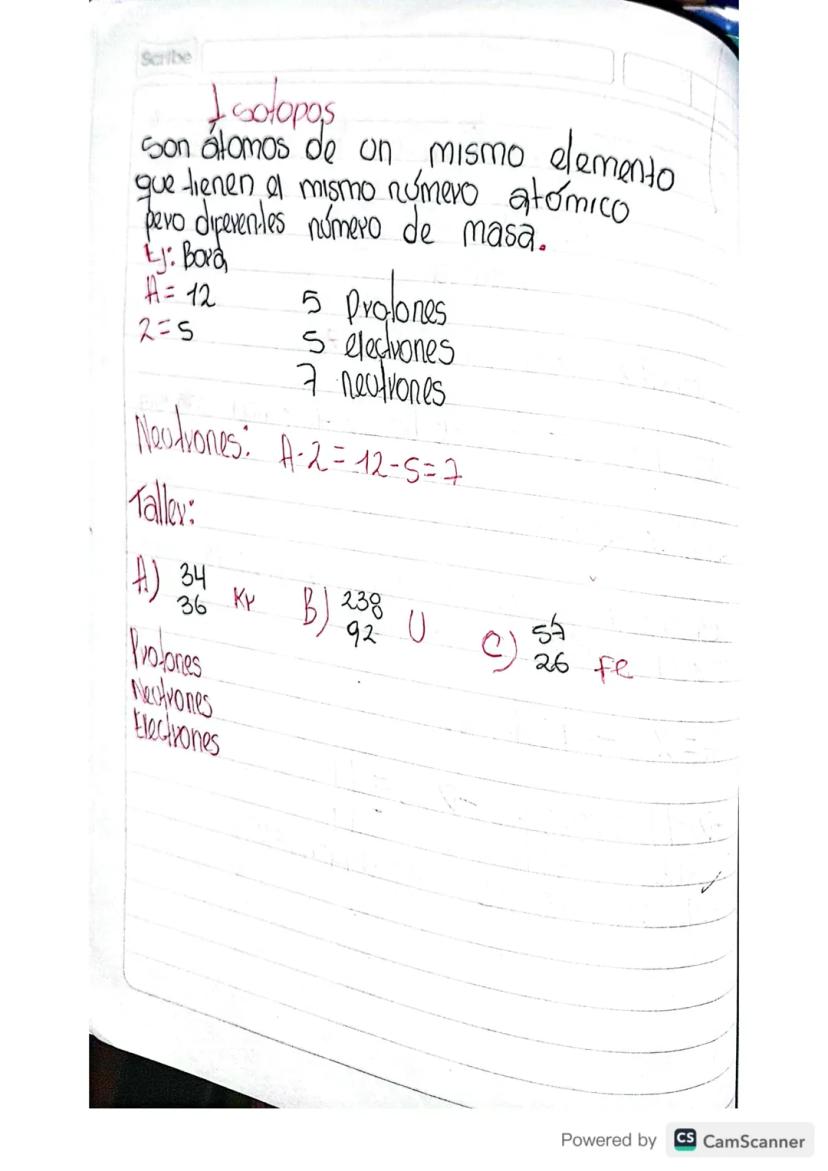 Scribe
Isotopos
son átomos de un mismo elemento
que tienen el mismo número atómico
pero diferentes número de masa.
Ej: Boro
A= 12 5 Protones
Z=5 5 electrones
7 neutrones
Neutrones: A-Z=12-5=7
Taller:
A) 34 Kr B) 238 U C) 57 Fe
36 92 26
Protones
Neutrones
Electrones
Powered by CS CamScanner